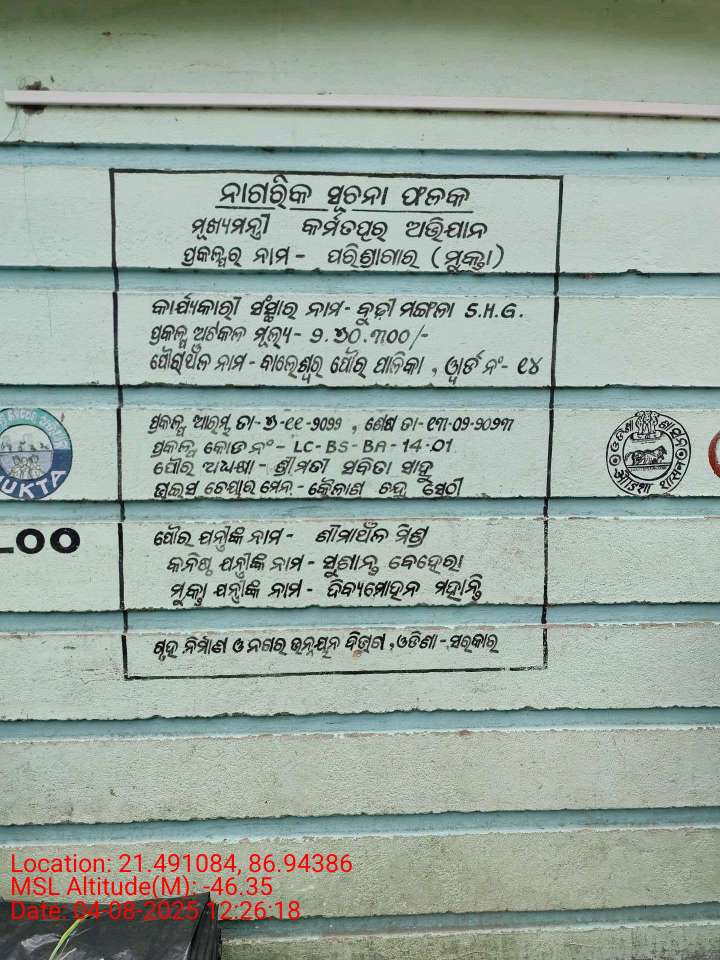 ନାଗରିକ ସୂଚନା ଫଳକ
ମୁଖ୍ୟମନ୍ତ୍ରୀ କର୍ମତତ୍ପର ଅଭିଯାନ
ପ୍ରକଳ୍ପର ନାମ - ପରିଶ୍ରାଗାର (ମୁକ୍ତା)
କାର୍ଯ୍ୟକାରୀ ସଂସ୍ଥାର ନାମ - ବୁଢ଼ୀ ମଙ୍ଗଳା S.H.G.
ପ୍ରକଳ୍ପ ଅଟକଳ ମୂଲ୍ୟ -
ପୌରାଞ୍ଚଳ ନାମ - ବାଲେଶ୍ୱର ପୌର ପାଳିକା , ୱାର୍ଡ ନଂ - ୧୪
ପ୍ରକଳ୍ପ ଆରମ୍ଭ ତା - ୨୦୨୨ , ଶେଷ ତା -
ପ୍ରକଳ୍ପ କୋଡ ନଂ - LC-BS-BA-14-01
ପୌର ଅଧକ୍ଷା - ଶ୍ରୀମତୀ ସବିତା ସାହୁ
ଭାଇସ ଚେୟାର ମେନ - କୈଳାଶ ଚନ୍ଦ୍ର ସେଠୀ
ପୌର ଯନ୍ତ୍ରୀଙ୍କ ନାମ - ମିଶ୍ର
କନିଷ୍ଠ ଯନ୍ତ୍ରୀଙ୍କ ନାମ - ସୁଶାନ୍ତ ବେହେରା
ମୁକ୍ତା ଯନ୍ତ୍ରୀଙ୍କ ନାମ - ଦିବ୍ୟମୋହନ ମହାନ୍ତି
ଗୃହ ନିର୍ମାଣ ଓ ନଗର ଉନ୍ନୟନ ବିଭାଗ , ଓଡିଶା - ସରକାର
UKTA
OO
ଓଡ଼ିଶା ଶାସନ
Location: 21.491084, 86.94386
MSL Altitude(M): -46.35
Date: 04-08-2025 12:26:18